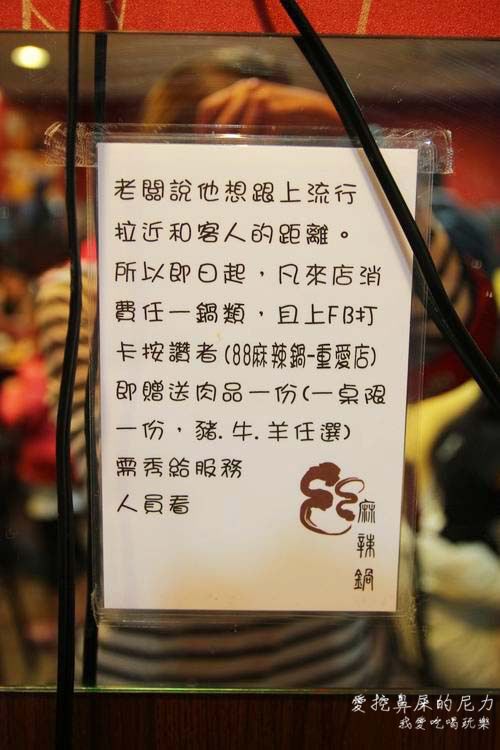 老闆說他想跟上流行
拉近和客人的距離。
所以即日起，凡來店消
費任一鍋類，且上FB打
卡按讚者(88麻辣鍋-重愛店)
即贈送肉品一份(一桌限
一份，豬.牛.羊任選)
需秀給服務
人員看
麻辣鍋
愛挖鼻屎的尼力
我愛吃喝玩樂